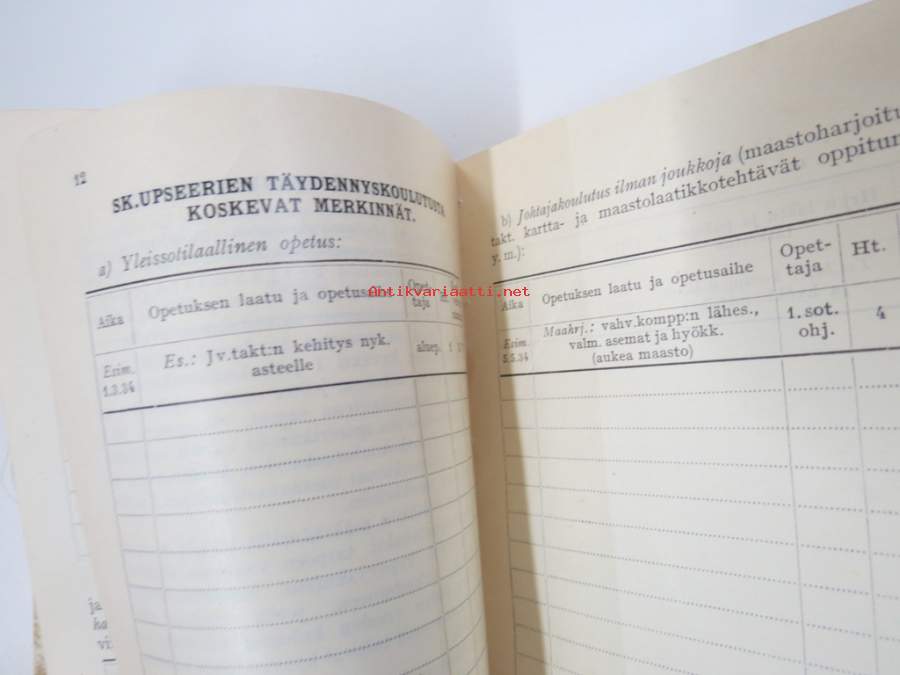 12
SK.UPSEERIEN TÄYDENNYSKOULUTUSTA
KOSKEVAT MERKINNÄT.
a) Yleissotilaallinen opetus:
Aika
Opetuksen laatu ja opetusaihe
Opet-
taja
Esim.
1.3.34
Es.: Jv.takt:n kehitys nyk.
asteelle
aluep.
1
b) Johtajakoulutus ilman joukkoja (maastoharjoitu
takt. kartta- ja maastolaatikkotehtävät oppitun
y. m.):
Aika
Opetuksen laatu ja opetusaihe
Opet-
taja
Ht.
Esim.
5.5.34
Maahrj.: vahv.kompp:n lähes.,
valm. asemat ja hyökk.
(aukea maasto)
1. sot.
ohj.
4
Antikvariaatti.net
ja
ha
vi